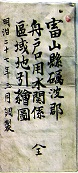 富山縣礪波郡
舟戸口用水関係
區域地引繪圖
仝
明治三十七年三月調製